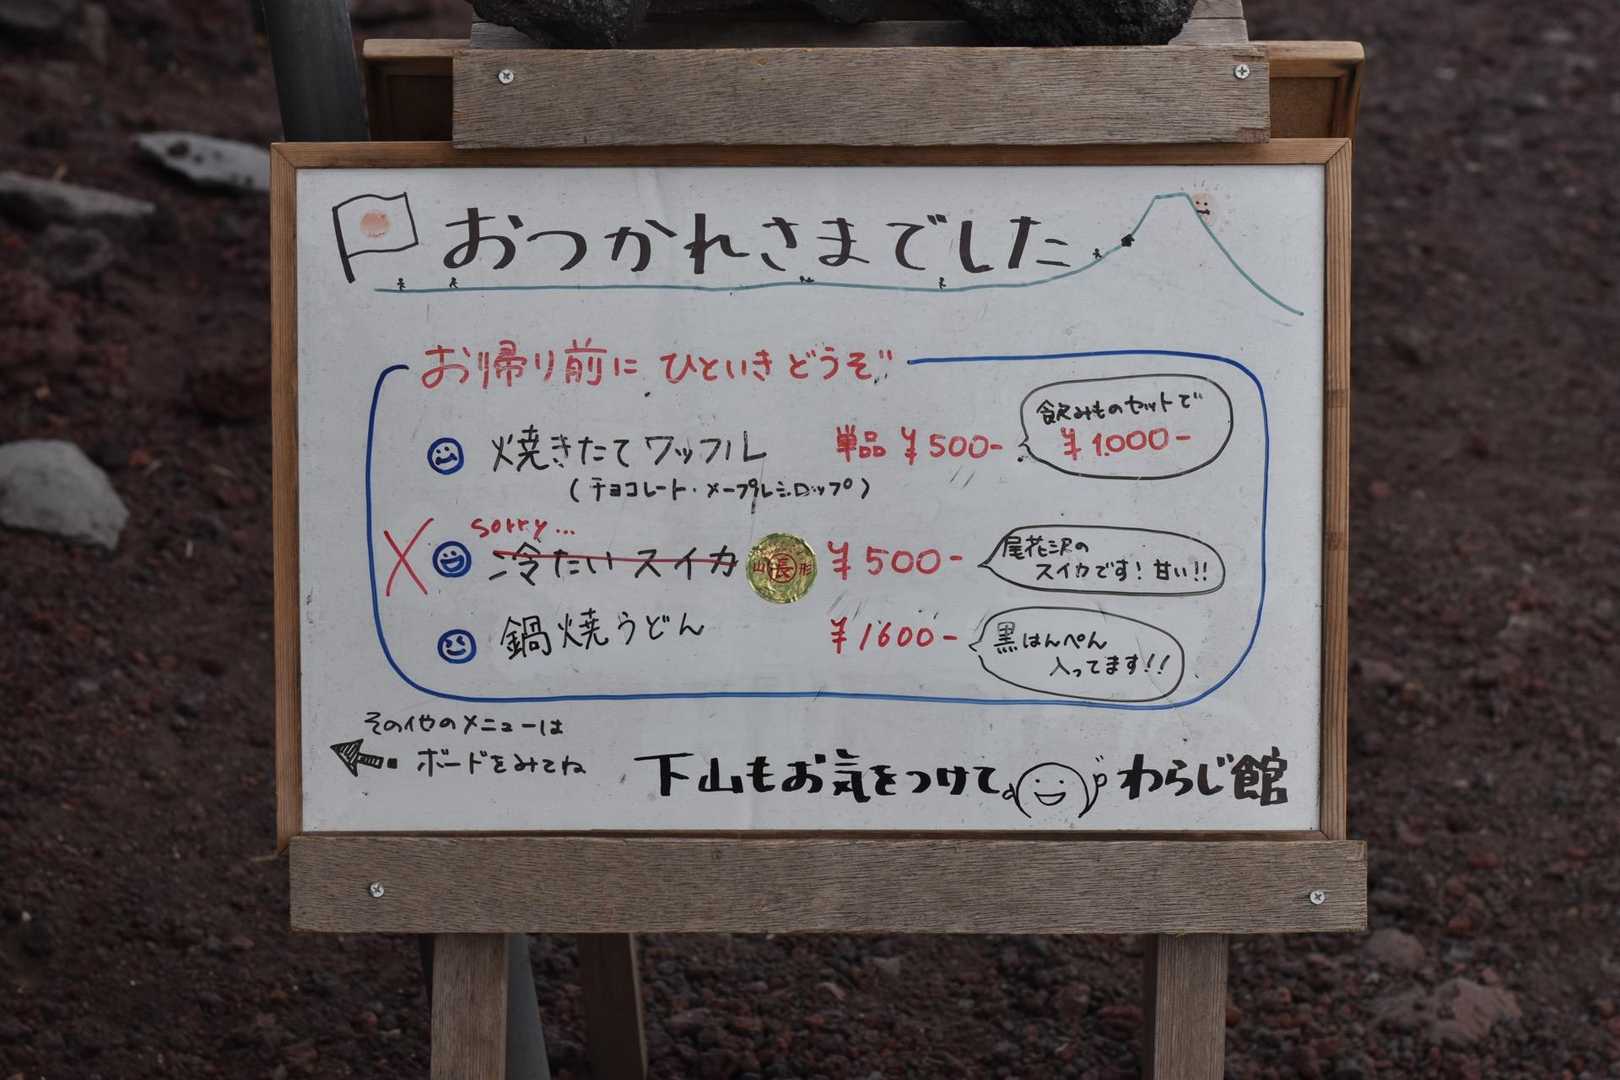 おつかれさまでした
お帰り前に ひといきどうぞ"
焼きたてワッフル 単品 ¥500-
飲みものセットで
¥1.000-
(チョコレート・メープルシロップ)
sorry...
冷たいスイカ 山長形 ¥500-
尾花沢の
スイカです! 甘い!!
鍋焼うどん ¥1600-
黒はんぺん
入ってます!!
その他のメニューは
ボードをみてね
下山もお気をつけて わらじ館